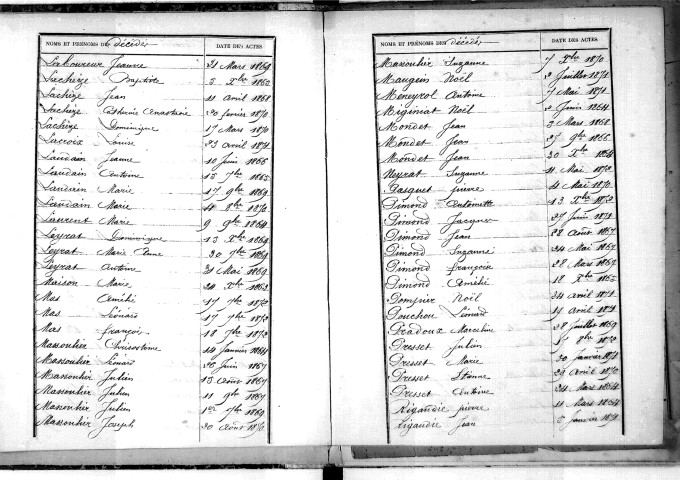 NOMS ET PRÉNOMS DES décédés DATE DES ACTES
Laboureur Jeanne 21 Mars 1869
Lachèze Baptiste 5 Xbre 1860
Lachèze Jean 11 avril 1868
Lachèze Catherine Anastasie 20 Janvier 1870
Lachèze Dominique 17 Mars 1870
Lacroix Louise 23 avril 1871
Laudain Jeanne 10 Juin 1866
Laudain Antoine 15 7bre 1865
Laudain Marie 17 9bre 1869
Laudain Marie 4 8bre 1870
Laurent Marie 9 9bre 1864
Leyrat Dominique 13 Xbre 1864
Leyrat Marie Anne 30 9bre 1869
Leyrat Antoine 21 Mai 1869
Maison Marie 24 Xbre 1862
Mas Amélie 17 7bre 1872
Mas Léonard 17 7bre 1872
Mas François 18 7bre 1872
Massoubir Chrisostome 14 Janvier 1864
Massoubir Léonard 26 Juin 1867
Massoubir Julien 13 Août 1867
Massoubir Julien 11 9bre 1867
Massoubir Julien 1er 7bre 1869
Massoubir Joseph 30 Août 1870
NOMS ET PRÉNOMS DES décédés DATE DES ACTES
Massoubir Suzanne 7 Xbre 1870
Maugein Noël 2 Juillet 1871
Méneyrol Antoine 7 Mai 1871
Miginiat Noël 2 Juin 1864
Mondet Jean 5 Mars 1868
Mondet Jean 27 9bre 1866
Mondet Jean 30 Xbre 1864
Neyrat Suzanne 11 Mai 1872
Pasquet pierre 4 Mai 1870
Pimond Antoinette 13 Xbre 1872
Pimond Jacques 27 Juin 1871
Pimond Jean 22 Août 1867
Pimond Suzanne 24 Mai 1867
Pimond françois 28 Mars 1869
Pimond Amélie 18 Xbre 1865
Pompier Noël 24 avril 1871
Pouchou Léonard 19 avril 1871
Pradoux Marceline 28 Juillet 1869
Presset Julien 9bre 1872
Presset Marie 30 Janvier 1871
Presset Etienne 29 Avril 1870
Presset Antoine 24 Mars 1864
Rigaudie pierre 11 Mars 1864
Rigaudie Jean 5 Janvier